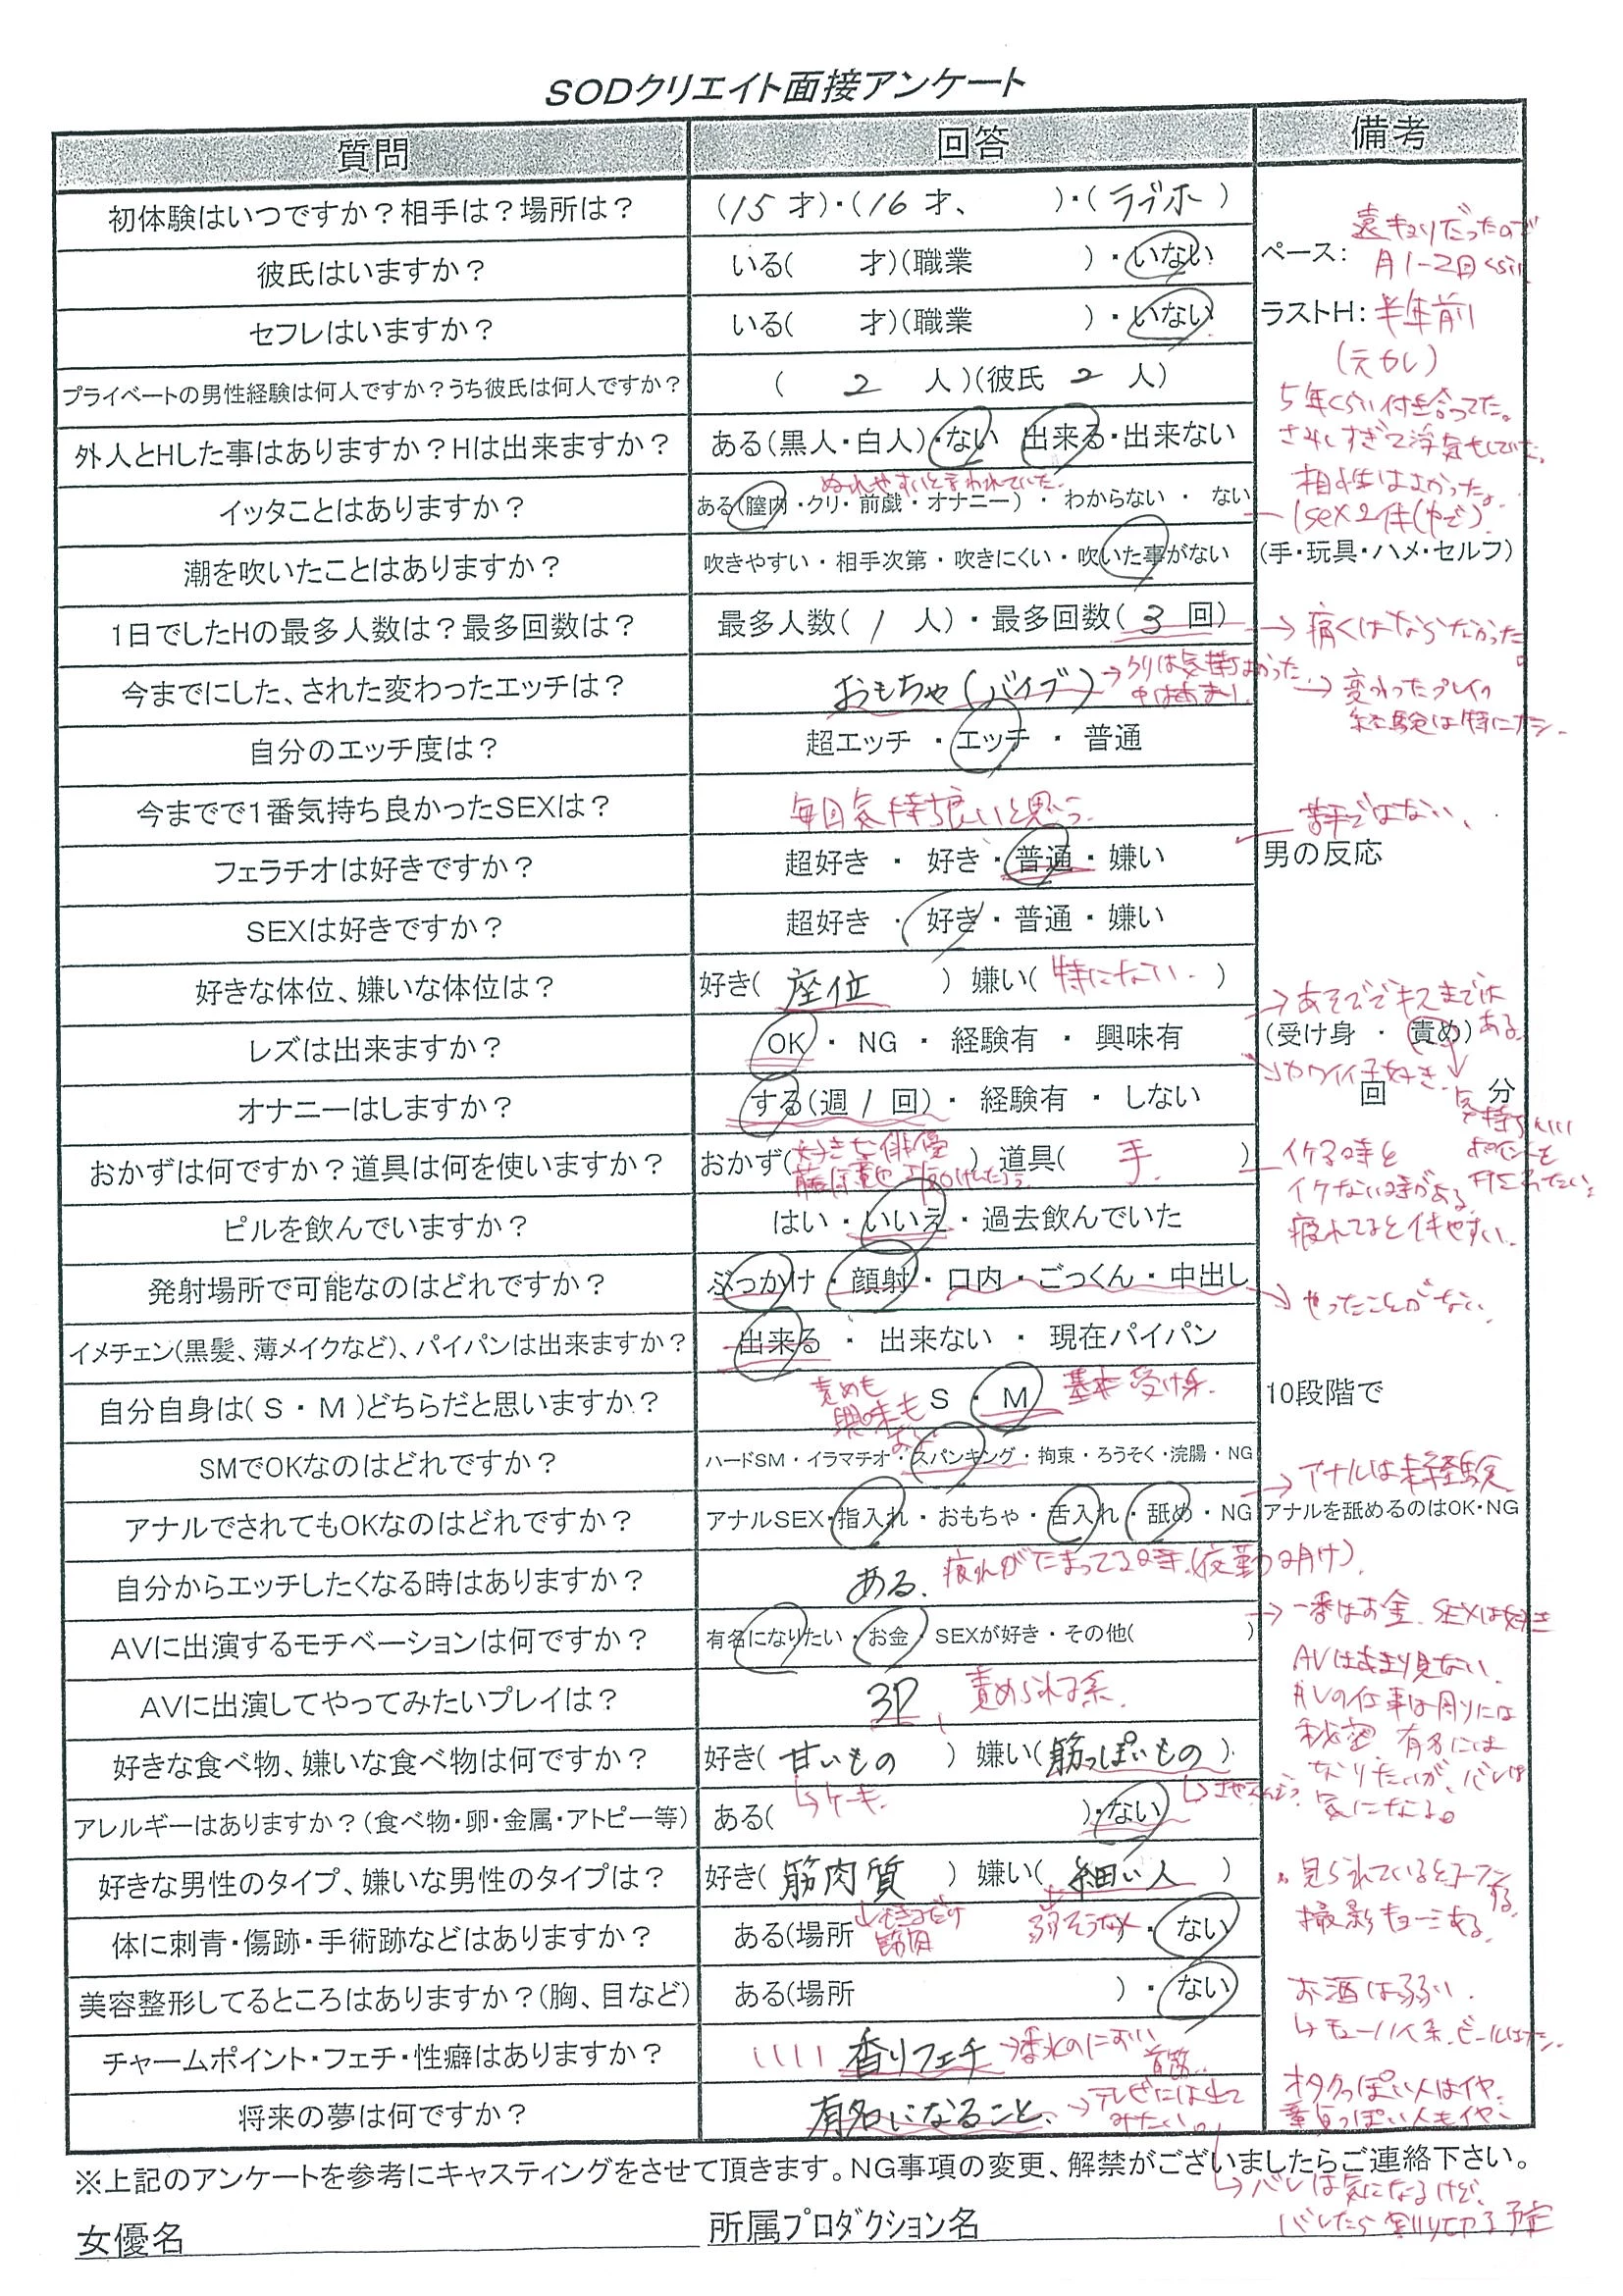 SODクリエイト面接アンケート
質問 回答 備考
初体験はいつですか？相手は？場所は？ (15才)・(16才、 )・(ラブホ)
彼氏はいますか？ いる( 才)(職業 )・いない ペース： 遠キョリだったので
月1-2回くらい
セフレはいますか？ いる( 才)(職業 )・いない ラストH：半年前
(元カレ)
プライベートの男性経験は何人ですか？うち彼氏は何人ですか？ ( 2 人)(彼氏 2 人)
5年くらい付き合ってた。
外人とHした事はありますか？Hは出来ますか？ ある(黒人・白人)・ない 出来る・出来ない
さみしすぎて浮気もしていた。
ぬれやすいと言われていた。
相性はよかった。
イッタことはありますか？ ある(膣内・クリ・前戯・オナニー)・わからない・ない
1sex2件(中で)
潮を吹いたことはありますか？ 吹きやすい・相手次第・吹きにくい・吹いた事がない (手・玩具・ハメ・セルフ)
1日でしたHの最多人数は？最多回数は？ 最多人数( 1 人)・最多回数( 3 回) →痛くはならなかった。
今までにした、された変わったエッチは？ おもちゃ(バイブ) →クリは気持よかった
中はあまり
→変わったプレイの
経験は特にナシ。
自分のエッチ度は？ 超エッチ・エッチ・普通
今までで1番気持ち良かったSEXは？ 毎回気持ち良いと思う。
苦手ではない、
フェラチオは好きですか？ 超好き・好き・普通・嫌い 男の反応
SEXは好きですか？ 超好き・好き・普通・嫌い
好きな体位、嫌いな体位は？ 好き( 座位 ) 嫌い(特にない。)
→あそびでキスまでは
ある。
レズは出来ますか？ OK・NG・経験有・興味有 (受け身・責め)
→カワイイ子好き。
オナニーはしますか？ する(週 1 回)・経験有・しない 回 分
気持ちいい
ポイントを
おかずは何ですか？道具は何を使いますか？ おかず(好きな俳優 ) 道具( 手. )
イケる時と
イケない時がある。
疲れてるとイキやすい。
ピルを飲んでいますか？ はい・いいえ・過去飲んでいた
発射場所で可能なのはどれですか？ ぶっかけ・顔射・口内・ごっくん・中出し
→やったことがない。
イメチェン(黒髪、薄メイクなど)、パイパンは出来ますか？ 出来る・出来ない・現在パイパン
自分自身は(S・M)どちらだと思いますか？ S・M 基本受け身。 10段階で
責めも
興味も
あり
SMでOKなのはどれですか？ ハードSM・イラマチオ・スパンキング・拘束・ろうそく・浣腸・NG
→アナルは未経験
アナルでされてもOKなのはどれですか？ アナルSEX・指入れ・おもちゃ・舌入れ・舐め・NG アナルを舐めるのはOK・NG
自分からエッチしたくなる時はありますか？ ある. 疲れがたまってる時。(夜勤明け).
→一番はお金. SEXは好き
AVに出演するモチベーションは何ですか？ 有名になりたい・お金・SEXが好き・その他( )
AVはあまり見ない。
AVに出演してやってみたいプレイは？ 3P、責められる系.
AVの仕事は周りには
秘密 有名には
なりたいが、バレは
気になる。
好きな食べ物、嫌いな食べ物は何ですか？ 好き(甘いもの) 嫌い(筋っぽいもの)
↳ケーキ.
アレルギーはありますか？(食べ物・卵・金属・アトピー等) ある( )・ない
好きな男性のタイプ、嫌いな男性のタイプは？ 好き(筋肉質) 嫌い(細い人)
見られているとコーフン
する。
撮影キョーミある。
体に刺青・傷跡・手術跡などはありますか？ ある(場所 ・ない
できるだけ
筋肉
弱そうな人
美容整形してるところはありますか？(胸、目など) ある(場所 )・ない
お酒は弱い.
↳チューハイ系. ビールはナシ.
チャームポイント・フェチ・性癖はありますか？ 香りフェチ →香水のにおい
首筋.
オタクっぽい人はイヤ.
童貞っぽい人もイヤ.
将来の夢は何ですか？ 有名になること、 →テレビには出て
みたい。
※上記のアンケートを参考にキャスティングをさせて頂きます。NG事項の変更、解禁がございましたらご連絡下さい。
↳バレは気になるけど、
バレたら割り切る予定
女優名 所属プロダクション名